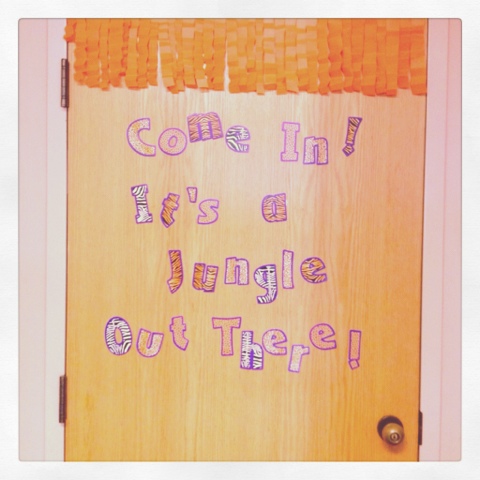 Come In!
It's a
Jungle
Out There!